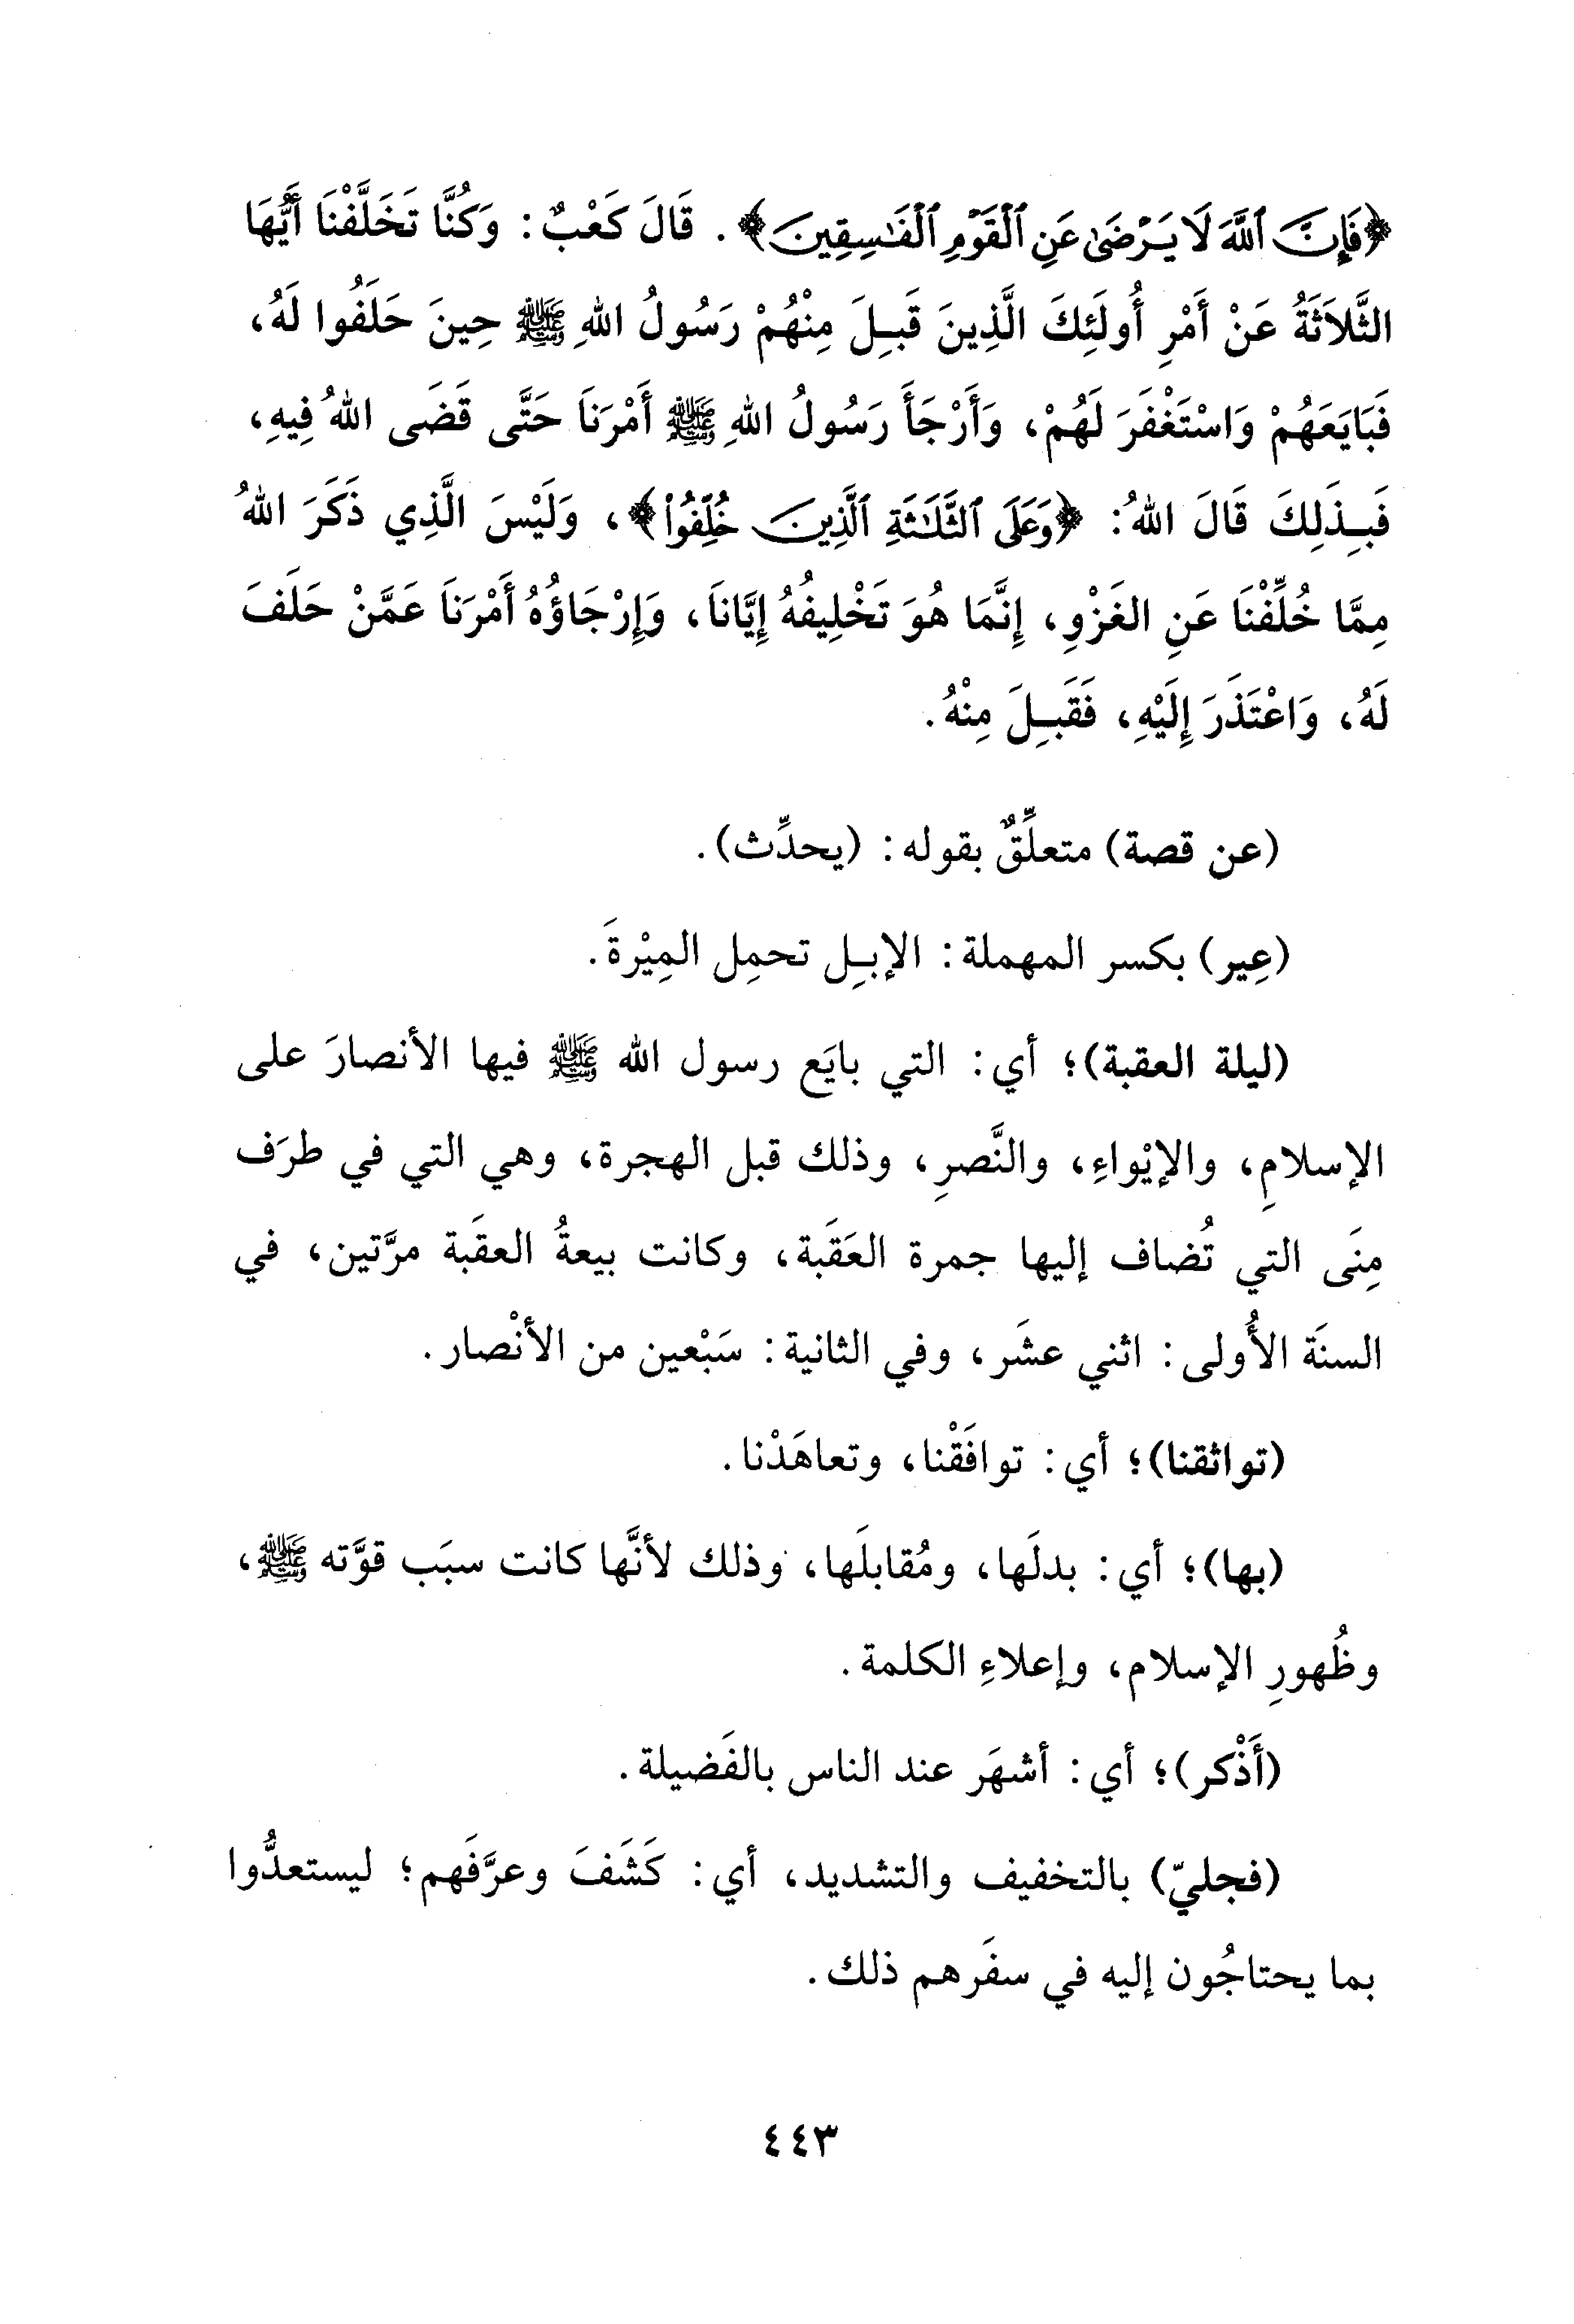 ﴿فَإِنَّ ٱللَّهَ لَا يَرْضَىٰ عَنِ ٱلْقَوْمِ ٱلْفَٰسِقِينَ﴾. قَالَ كَعْبٌ: وَكُنَّا تَخَلَّفْنَا أَيُّهَا
الثَّلاَثَةُ عَنْ أَمْرِ أُولَئِكَ الَّذِينَ قَبِلَ مِنْهُمْ رَسُولُ اللهِ ﷺ حِينَ حَلَفُوا لَهُ،
فَبَايَعَهُمْ وَاسْتَغْفَرَ لَهُمْ، وَأَرْجَأَ رَسُولُ اللهِ ﷺ أَمْرَنَا حَتَّى قَضَى اللهُ فِيهِ،
فَبِذَلِكَ قَالَ اللهُ: ﴿وَعَلَى ٱلثَّلَٰثَةِ ٱلَّذِينَ خُلِّفُوا۟﴾، وَلَيْسَ الَّذِي ذَكَرَ اللهُ
مِمَّا خُلِّفْنَا عَنِ الغَزْوِ، إِنَّمَا هُوَ تَخْلِيفُهُ إِيَّانَا، وَإِرْجَاؤُهُ أَمْرَنَا عَمَّنْ حَلَفَ
لَهُ، وَاعْتَذَرَ إِلَيْهِ، فَقَبِلَ مِنْهُ.
(عن قصة) متعلِّقٌ بقوله: (يحدِّث).
(عِير) بكسر المهملة: الإبِل تحمِل المِيْرةَ.
(ليلة العقبة)؛ أي: التي بايَع رسول الله ﷺ فيها الأنصارَ على
الإسلامِ، والإيْواءِ، والنَّصرِ، وذلك قبل الهجرة، وهي التي في طرَف
مِنَى التي تُضاف إليها جمرة العَقَبة، وكانت بيعةُ العقَبة مرَّتين، في
السنَة الأُولى: اثني عشَر، وفي الثانية: سَبْعين من الأنْصار.
(تواثقنا)؛ أي: توافَقْنا، وتعاهَدْنا.
(بها)؛ أي: بدلَها، ومُقابلَها، وذلك لأنَّها كانت سبَب قوَّته ﷺ،
وظُهورِ الإسلام، وإعلاءِ الكلمة.
(أَذْكر)؛ أي: أشهَر عند الناس بالفَضيلة.
(فجليّ) بالتخفيف والتشديد، أي: كَشَفَ وعرَّفَهم؛ ليستعدُّوا
بما يحتاجُون إليه في سفَرهم ذلك.
٤٤٣